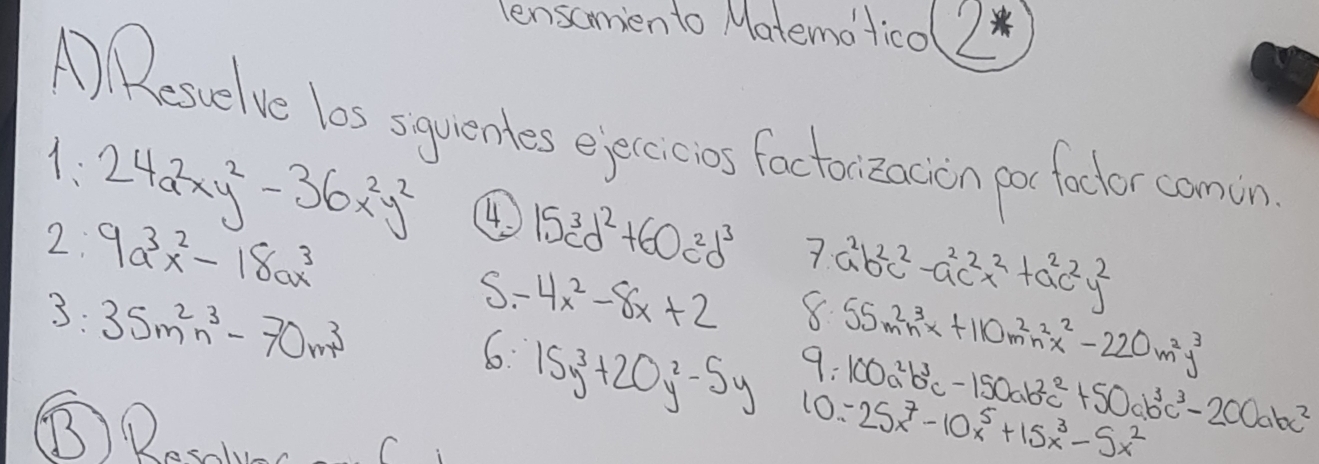 Pensamiento Matemático 2*
A) Resuelve los siguientes ejercicios factorización por factor común.
1: 24a²xy² - 36x²y²
2: 9a³x² - 18ax³
3: 35m²n³ - 70m³
4: 15c³d² + 60c²d³
5.- 4x² - 8x + 2
6: 15y³ + 20y² - 5y
7: a²b²c² - a²c²x² + a²c²y²
8: 55m²n³x + 110m²n²x² - 220m²y³
9: 100a²b³c - 150ab²c² + 50ab³c³ - 200abc²
10.- 25x⁷ - 10x⁵ + 15x³ - 5x²
B)